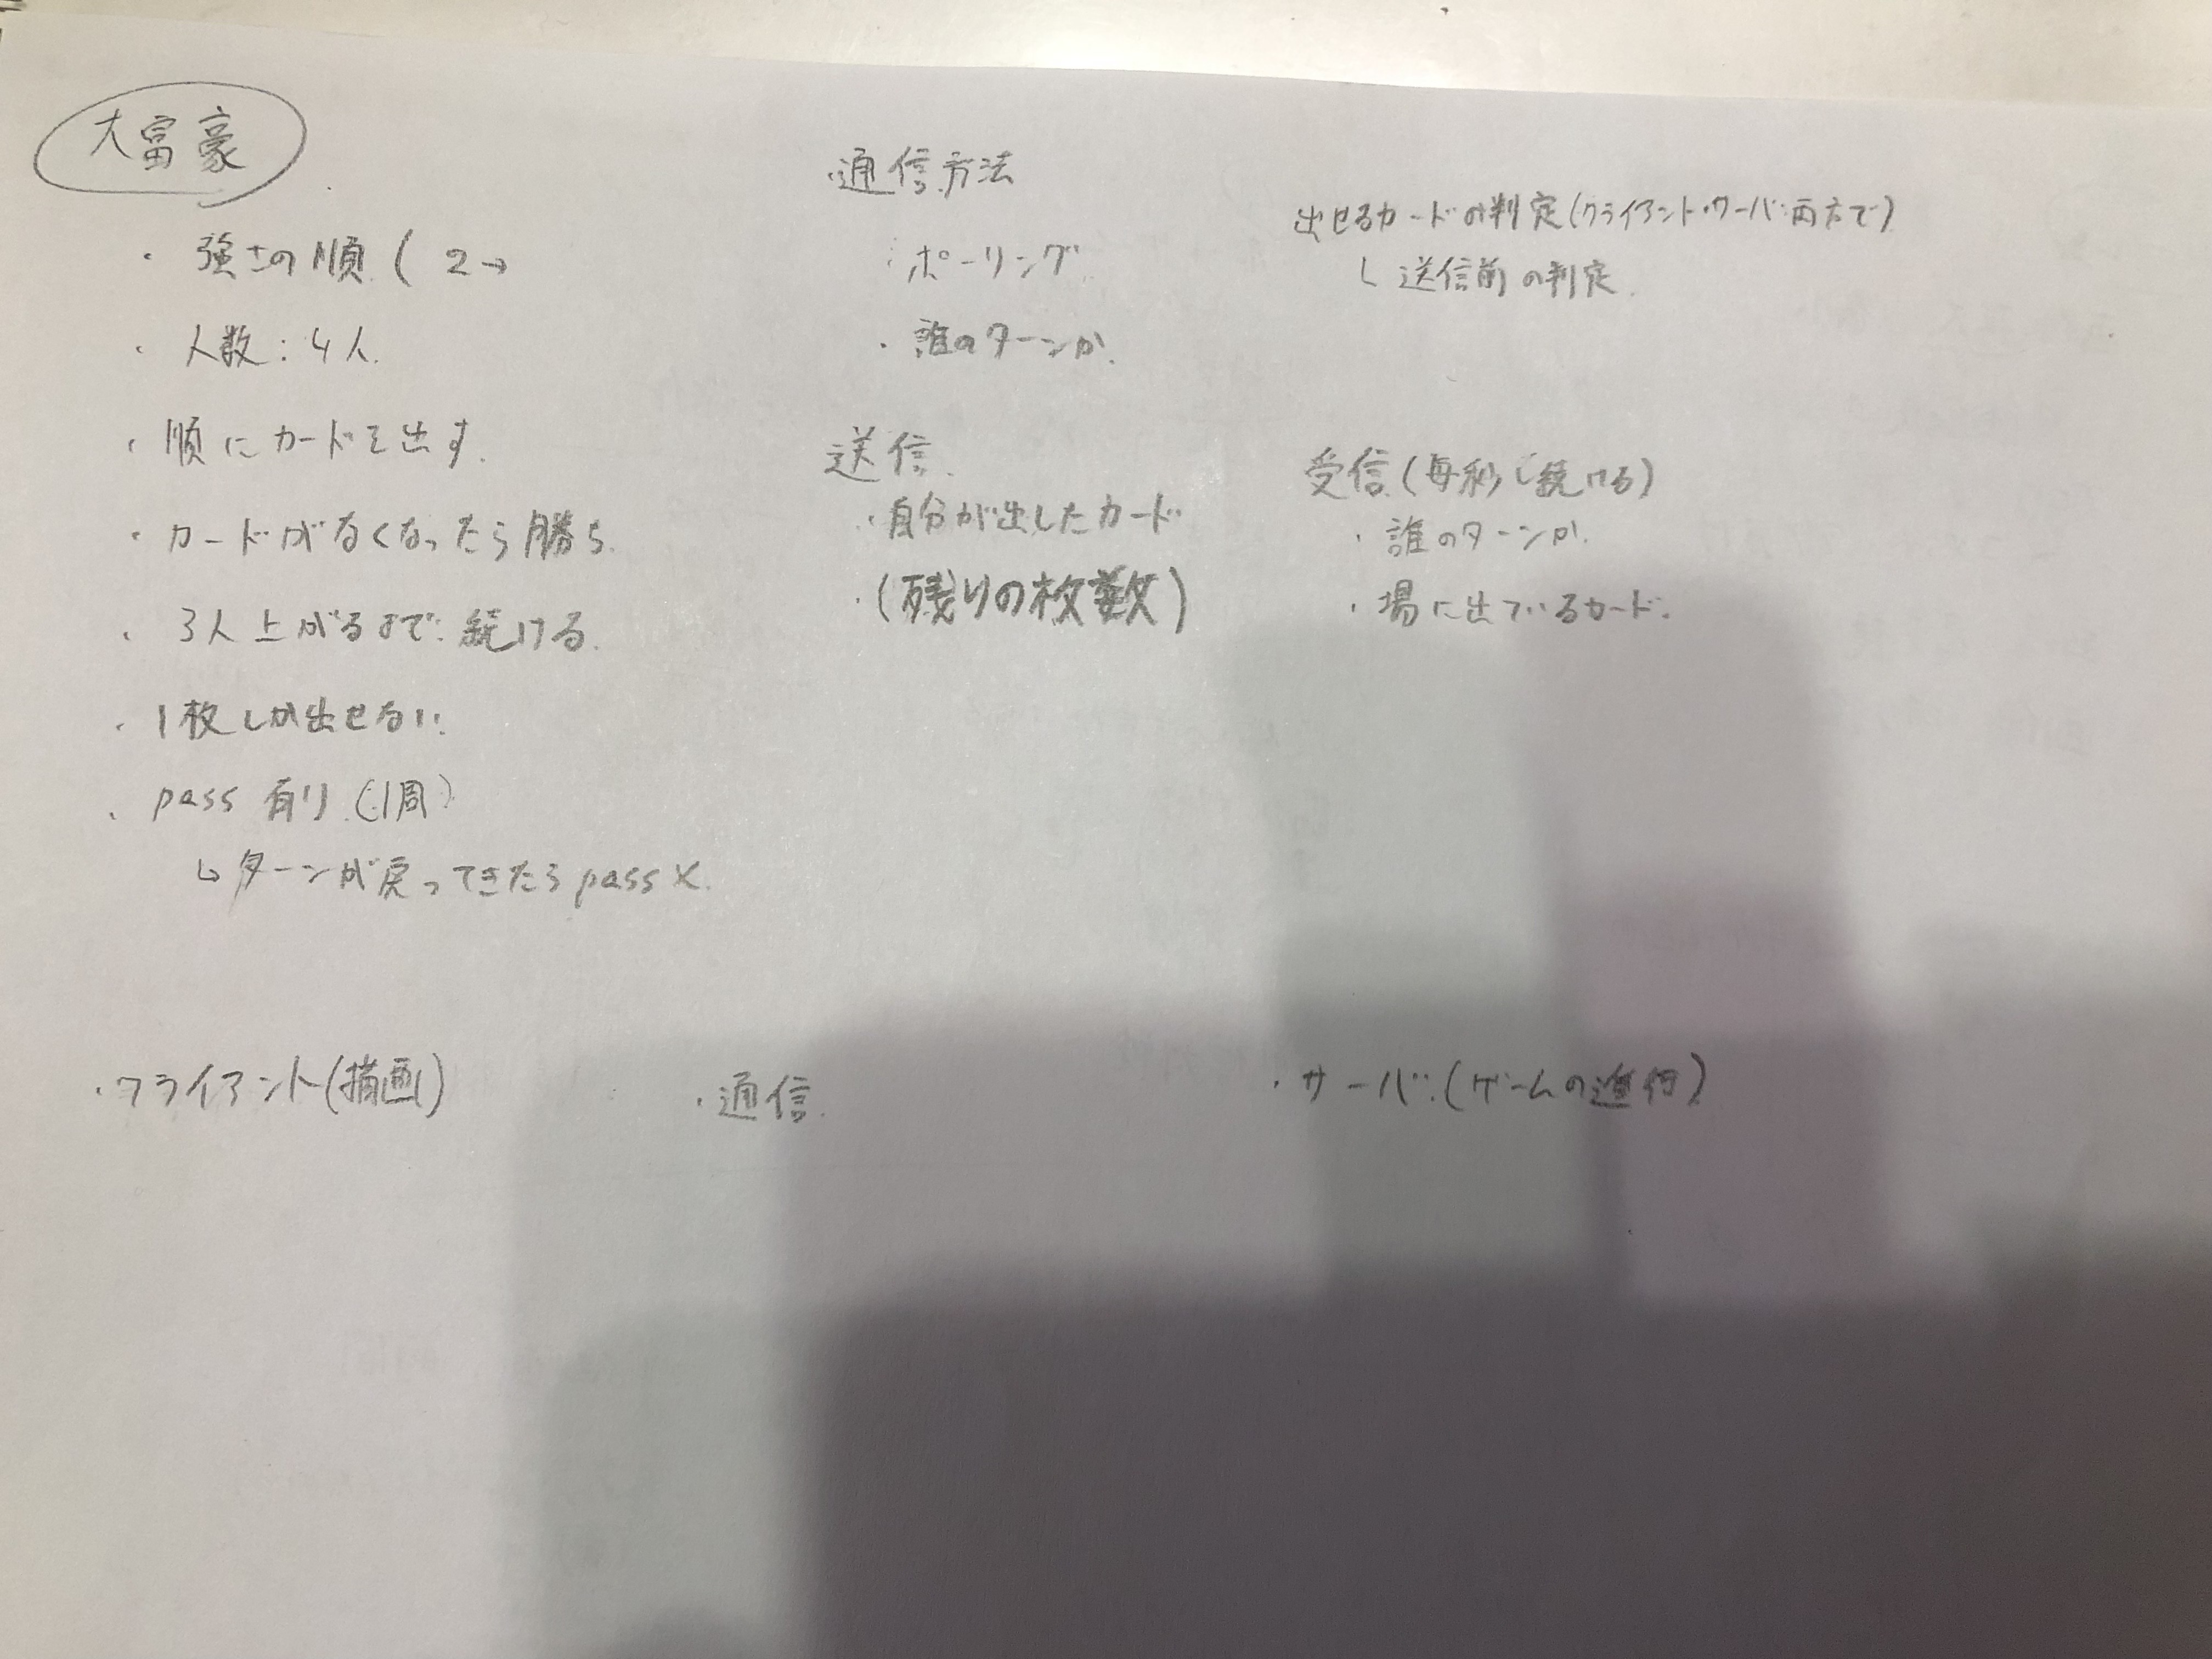 大富豪
・強さの順 ( 2→
・人数:4人
・順にカードを出す.
・カードがなくなったら勝ち.
・3人上がるまで続ける.
・1枚しか出せない.
・pass 有り (1周)
↳ターンが戻ってきたらpass×.
・通信方法
・ポーリング
・誰のターンか.
送信.
・自分が出したカード
・(残りの枚数)
出せるカードの判定(クライアント・サーバ両方で)
└ 送信前の判定.
受信(毎秒し続ける)
・誰のターンか.
・場に出ているカード.
・クライアント(描画)
・通信.
・サーバ(ゲームの進行)